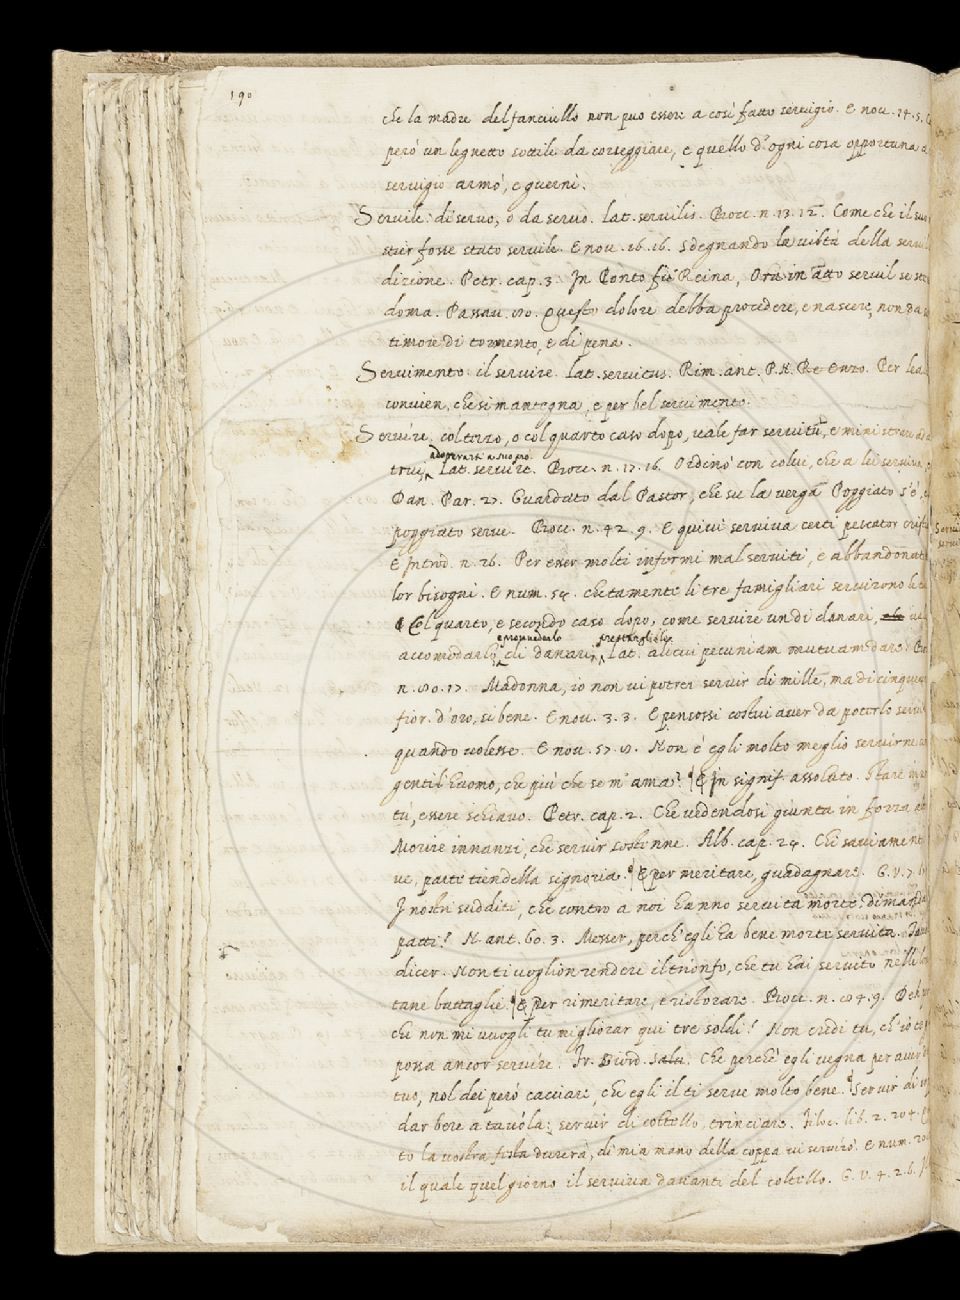 190
che la madre del fanciullo non può essere a così fatto servigio. E nov. 14. 5.
però un legnetto sottile da corseggiare, e quello d'ogni cosa opportuna a
servigio armò, e guernì.
Servile. di servo, o da servo. lat. servilis. Bocc. n. 13. 12. Come che il suo
stier fosse stato servile. E nov. 16. 16. Sdegnando la viltà della servil
dizione. Petr. cap. 3. In Ponto fù Reina, Ora in atto servil se
doma. Passau. 80. Questo dolore debba procedere, e nascere, non da
timore di tormento, e di pena.
Servimento. il servire. lat. servitus. Rim. ant. P. N. Re Enzo. Per
convien, che si mantegna, e per bel servimento.
Servire. col terzo, o col quarto caso dopo, vale far servitù, e ministrare ad
adoperarsi a suo pro
trui, lat. servire. Bocc. n. 17. 16. Ordinò con colui, che a lei serviva,
Dan. Par. 27. Guardato dal Pastor, che su la verga Poggiato s'è,
poggiato serve. Bocc. n. 42. 9. E quivi serviva certi pescator
E Introd. n. 26. Per esser molti infermi mal serviti, e abbandonat
lor bisogni. E num. 54. chetamente li tre famigliari servirono
Col quarto, e secondo caso dopo, come servire un di danari,
e provvederlo prestarglieli
accomodarlo di danari, lat. alicui pecuniam mutuam dare.
n. 80. 17. Madonna, io non vi potrei servir di mille, ma di cinque
fior. d'oro, sì bene. E nov. 3. 3. E pensossi costui aver da poterlo servi
quando volesse. E nov. 57. 8. Non è egli molto meglio servirne
gentil huomo, che più che se m' ama? E In signif. assoluto. Stare in
tù, essere schiavo. Petr. cap. 2. Che vedendosi giunta in forza
Morire innanzi, che servir sostenne. Alb. cap. 24. Chi saviament
ve, parte tien della signoria. E per meritare, guadagnare. G. V. 7.
I nostri sudditi, che contro a noi hanno servita morte, dimanda
patti? N. ant. 60. 3. Messer, perch' egli ha bene morte servita.
dicer. Non ti voglion rendere il trionfo, che tu hai servito nelle
tane battaglie. E per rimeritare, e ristorare. Bocc. n. 84. 9. Deh
che non mi vuogli tu migliorar qui tre soldi? Non credi tu, ch' io
possa ancor servire. Fr. Giord. Salu. Che perché egli vegna per aver
tuo, nol dei però cacciare, che egli il ti serve molto bene. Servir di
dar bere a tavola: servir di coltello, trinciare. Filoc. lib. 2. 204.
to la vostra festa durerà, di mia mano della coppa vi servirò. E num.
il quale quel giorno il serviva davanti del coltello. G. V. 4. 2. 6.